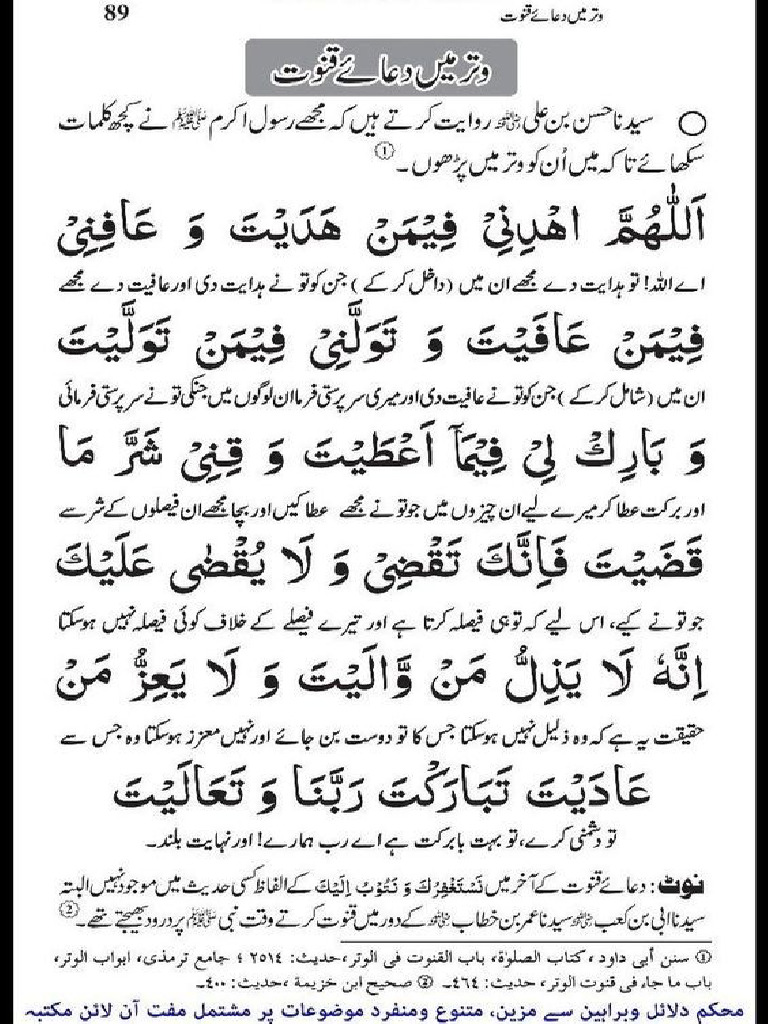 وتر میں دعائے قنوت 89
وتر میں دعائے قنوت
سیدنا حسن بن علی رضی اللہ عنہ روایت کرتے ہیں کہ مجھے رسول اکرم ﷺ نے کچھ کلمات
سکھائے تاکہ میں اُن کو وتر میں پڑھوں۔①
اَللّٰهُمَّ اهْدِنِيْ فِيْمَنْ هَدَيْتَ وَ عَافِنِيْ
اے اللہ! تو ہدایت دے مجھے ان میں (داخل کر کے) جن کو تو نے ہدایت دی اور عافیت دے مجھے
فِيْمَنْ عَافَيْتَ وَ تَوَلَّنِيْ فِيْمَنْ تَوَلَّيْتَ
ان میں (شامل کر کے) جن کو تو نے عافیت دی اور میری سرپرستی فرما ان لوگوں میں جنکی تو نے سرپرستی فرمائی
وَ بَارِكْ لِيْ فِيْمَآ اَعْطَيْتَ وَ قِنِيْ شَرَّ مَا
اور برکت عطا کر میرے لیے ان چیزوں میں جو تو نے مجھے عطا کیں اور بچا مجھے ان فیصلوں کے شر سے
قَضَيْتَ فَاِنَّكَ تَقْضِيْ وَ لَا يُقْضٰى عَلَيْكَ
جو تو نے کیے، اس لیے کہ تو ہی فیصلہ کرتا ہے اور تیرے فیصلے کے خلاف کوئی فیصلہ نہیں ہو سکتا
اِنَّهٗ لَا يَذِلُّ مَنْ وَّالَيْتَ وَ لَا يَعِزُّ مَنْ
حقیقت یہ ہے کہ وہ ذلیل نہیں ہو سکتا جس کا تو دوست بن جائے اور نہیں معزز ہو سکتا وہ جس سے
عَادَيْتَ تَبَارَكْتَ رَبَّنَا وَ تَعَالَيْتَ
تو دشمنی کرے، تو بہت بابرکت ہے اے رب ہمارے! اور نہایت بلند۔
نوٹ: دعائے قنوت کے آخر میں نَسْتَغْفِرُكَ وَ نَتُوْبُ اِلَيْكَ کے الفاظ کسی حدیث میں موجود نہیں البتہ
سیدنا ابی بن کعب رضی اللہ عنہ سیدنا عمر بن خطاب رضی اللہ عنہ کے دور میں قنوت کرتے وقت نبی ﷺ پر درود بھیجتے تھے۔②
① سنن أبی داود، کتاب الصلوٰة، باب القنوت فی الوتر، حدیث: ۲۵۱۴؛ جامع ترمذی، ابواب الوتر،
باب ما جاء فی قنوت الوتر، حدیث: ۴۶۴۔ ② صحیح ابن خزیمة، حدیث: ۴۰۰۔
محکم دلائل وبراہین سے مزین، متنوع ومنفرد موضوعات پر مشتمل مفت آن لائن مکتبہ